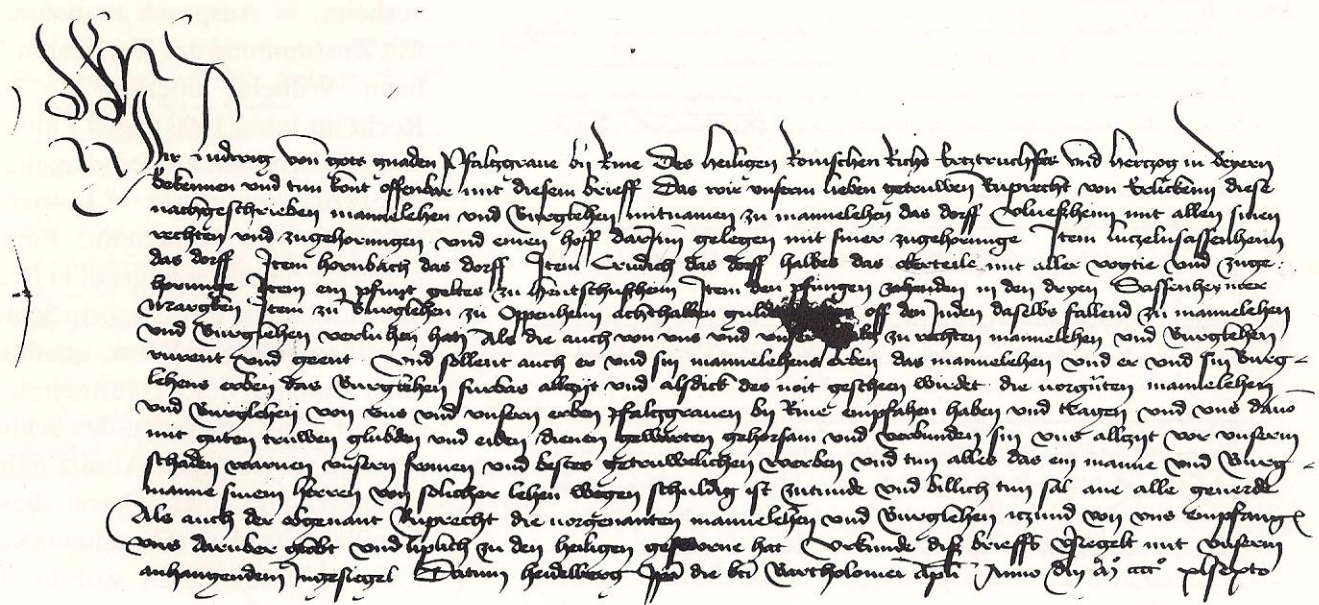 Wir Ludwig von gots gnaden Pfaltzgrave bij Rine Des heiligen Romischen Richs Ertztruchseß und hertzog in Beyern
Bekennen und tun kont offenbar mit diesem brieff Das wir unserm lieben getruwen Ruprecht von diese
nachgeschrieben mannelehen und Burglehen mitnamen zu mannelehen das dorff mit allen sinen
rechten und zugehorungen und einen hoff darinn gelegen mit siner zugehorunge Item lutzelnsassenheim
das dorff Item hornbach das dorff Item Crudich das dorff halbes das oberteile mit aller vogtie und zuge
horunge Item ein pfunt geltes zu hentschußheim Item den zehenden in den dryen Sassenheymer
marcken Item zu Burglehen zu Oppenheim achthalben off den Juden daselbs fallend zu mannelehen
und Burglehen verluhen han Als die auch von uns und zu rechten mannelehen und Burglehen
rurent und geent Und sollent auch er und sin mannelehens erben das mannelehen und er und sin Burg-
lehens erben das Burglehen furbas allzijt und alsdick des noit gescheen wirdet die vorgnten mannelehen
und Burglehen von uns und unsern erben Pfaltzgraven bij Rine empfahen haben und tragen und uns davon
mit guten truwen glubden und eiden dienen gewarten gehorsam und verbunden sin uns allzijt vor unserm
schaden warnen unsern fromen und bestes getruwelichen werben und tun alles das ein manne und Burg-
manne sinem herren von solicher lehen wegen schuldig ist zutunde und billich tun sal ane alle geverde
Als auch der obgenant Ruprecht die vorgenanten mannelehen und Burglehen itzund von uns empfangen
uns daruber globt und liplich zu den heiligen gesworne hat Urkunde diß brieffs versiegelt mit unserm
anhangendem Ingesiegel Datum heidelberg die bti Bartholomei apli Anno dni mº ccccº xlsexto